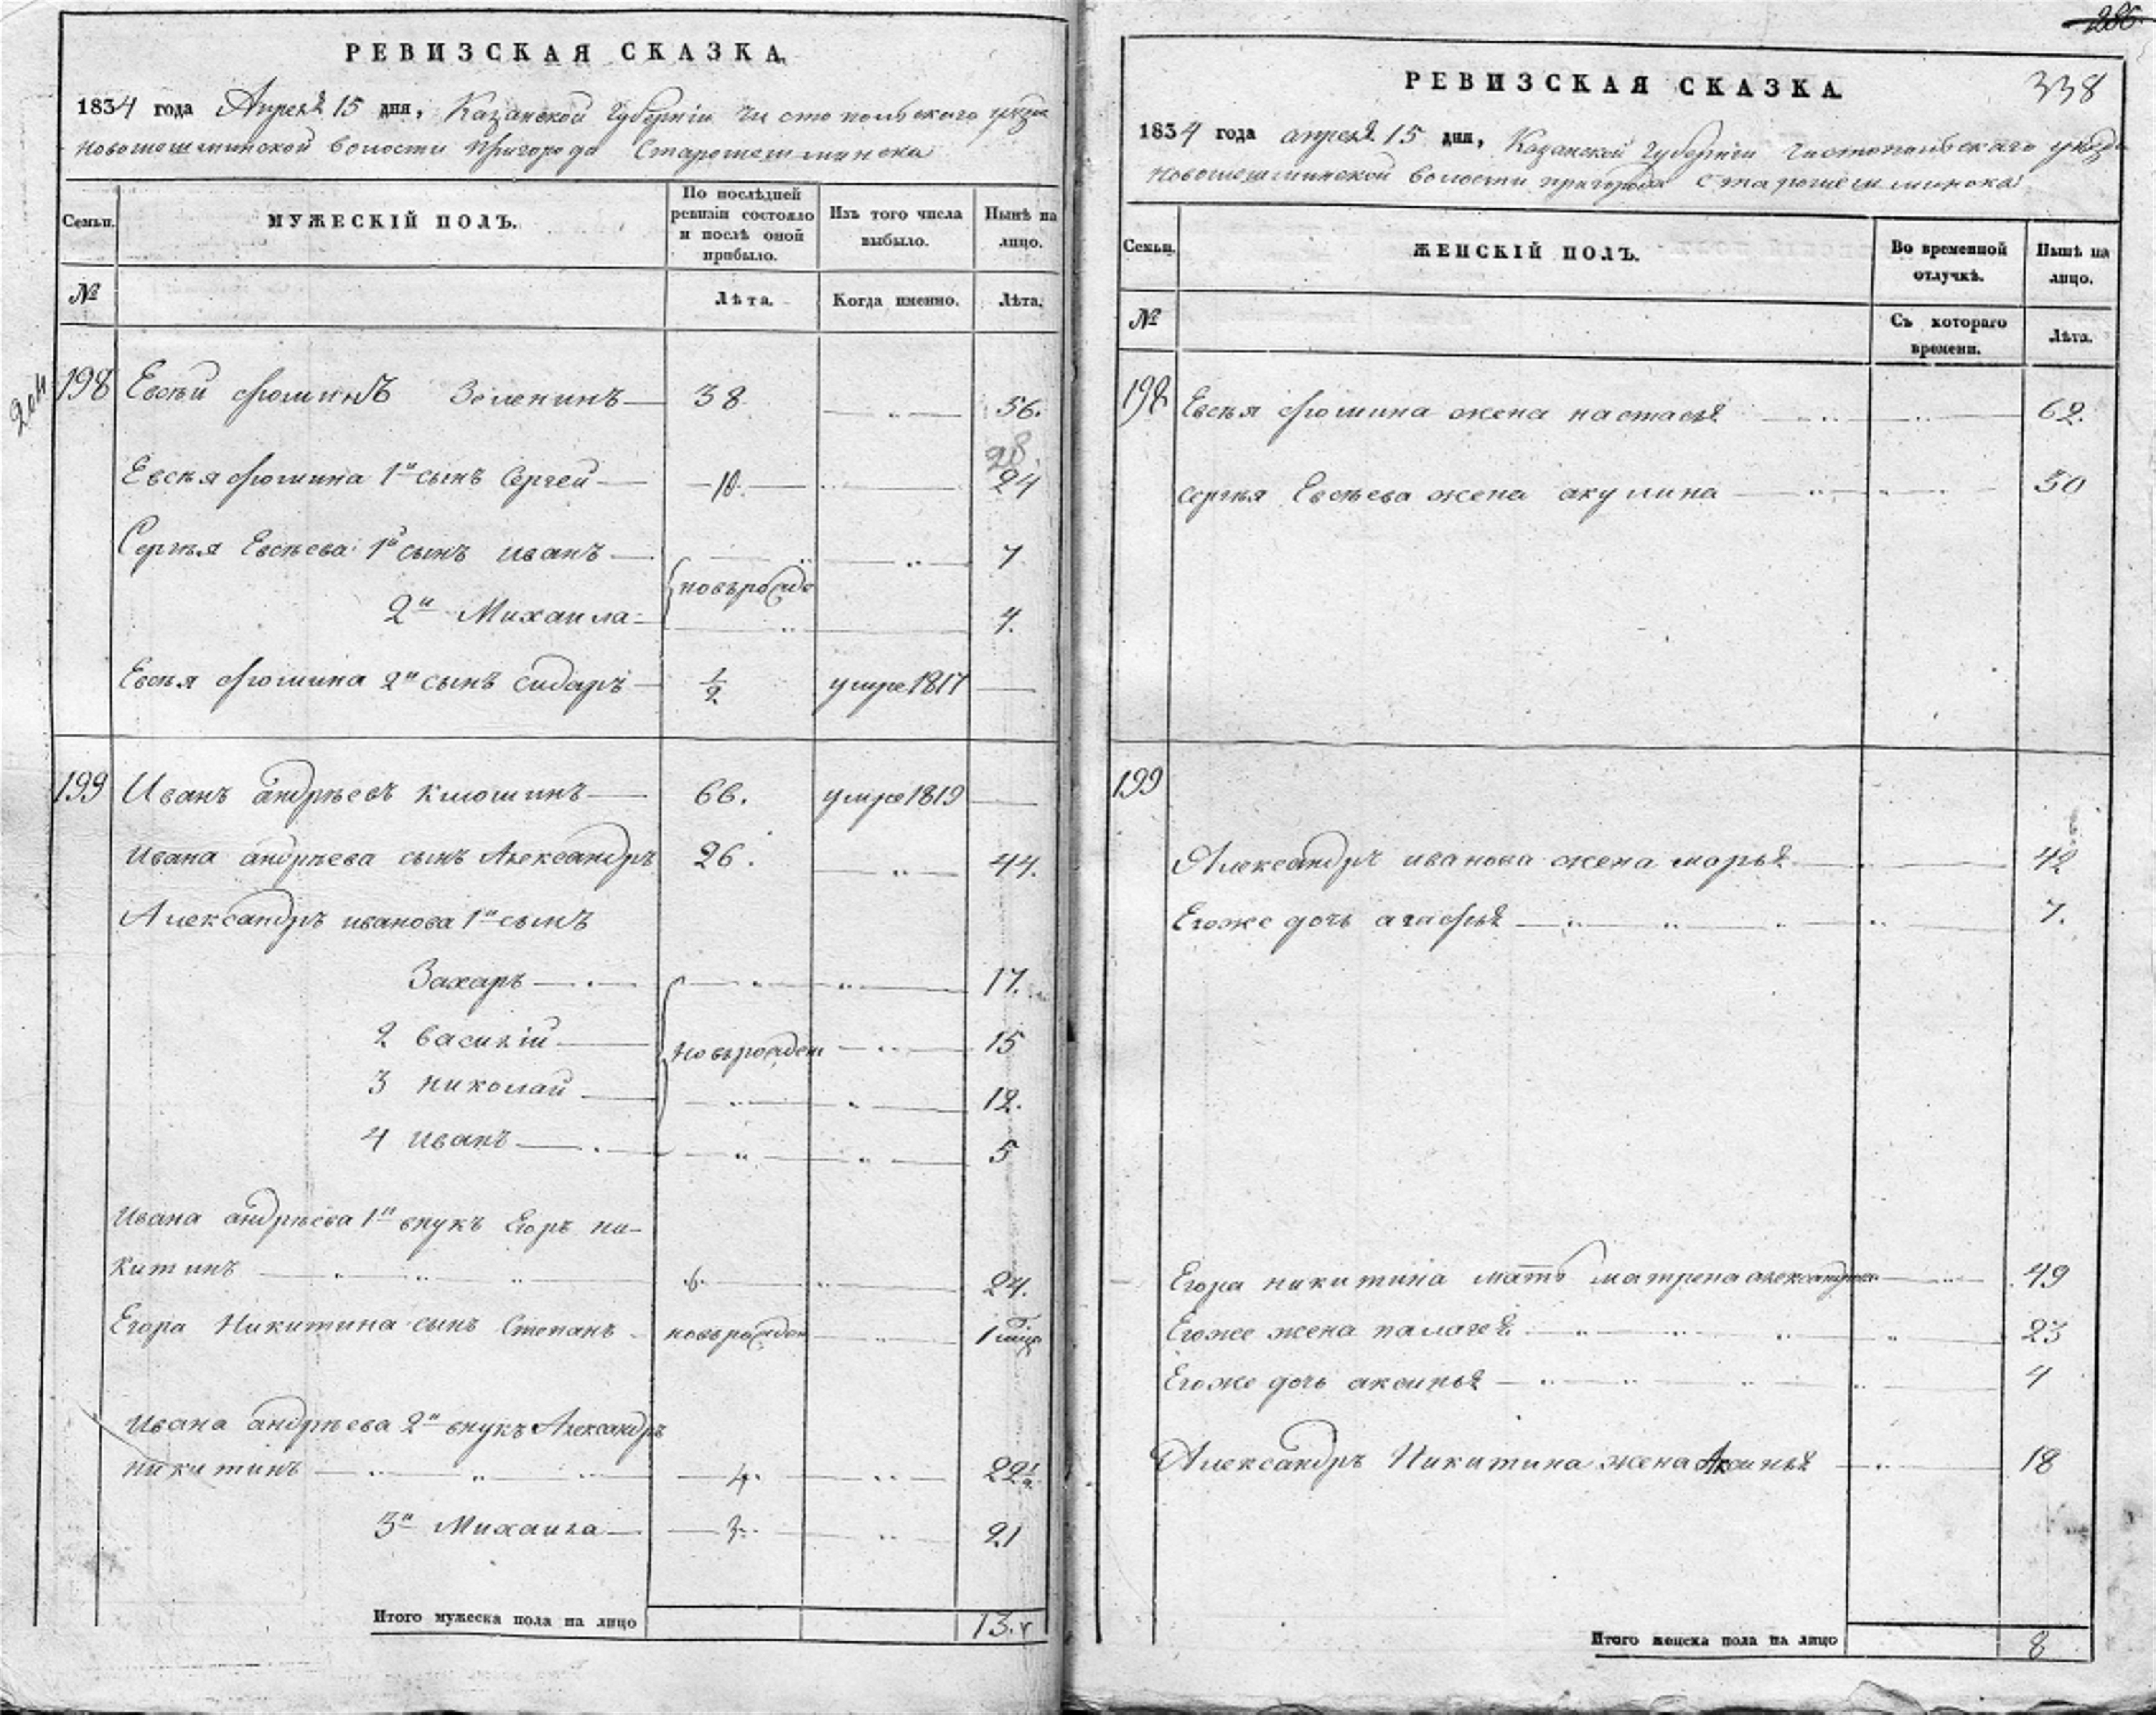 РЕВИЗСКАЯ СКАЗКА.
1834 года Апреля 15 дня, Казанской Губерніи Чистопольскаго уезда
Новошешминской волости Пригорода Старошешминска
Семьи.
МУЖЕСКІЙ ПОЛЪ.
По послѣдней ревизіи состояло и послѣ оной прибыло.
Изъ того числа выбыло.
Нынѣ на лицо.
№
Лѣта.
Когда именно.
Лѣта.
198 Евсѣй Фоминъ Зеленинъ 38 56.
28.
Евсѣя Фомина 1й сынъ Сергей 10. 24
Сергѣя Евсѣева 1й сынъ иванъ 7
новърожде
2й Михаила 4.
Евсѣя Фомина 2й сынъ сидаръ 1/2 умре 1817
199 Иванъ андрѣевъ Клюшинъ 66. умре 1819
Ивана андрѣева сынъ Александръ 26. 44.
Александръ иванова 1й сынъ
Захаръ 17.
2 василій 15
новърожден
3 николай 12.
4 иванъ 5
Ивана андрѣева 1й внукъ Егоръ ни-
китинъ 6. 24.
Егора Никитина сынъ Степанъ новърожден 1
Ивана андрѣева 2й внукъ Александръ
никитинъ 4. 22 1/2
3й Михаила 3. 21
Итого мужеска пола на лицо 13.
286.
338
РЕВИЗСКАЯ СКАЗКА
1834 года апреля 15 дня, Казанской Губерніи Чистопольскаго уезда
Новошешминской волости пригорода Старошешминска
Семьи.
ЖЕНСКІЙ ПОЛЪ.
Во временной отлучкѣ.
Нынѣ на лицо.
№
Съ котораго времени.
Лѣта.
198 Евсѣя Фомина жена настасья 62.
Сергѣя Евсѣева жена акулина 30
199
Александръ иванова жена марья 42
Егоже дочь агафья 7.
Егора никитина мать матрена александрова 49
Егоже жена палагея 23
Егоже дочь аксинья 4
Александръ Никитина жена Аксинья 18
Итого женска пола на лицо 8